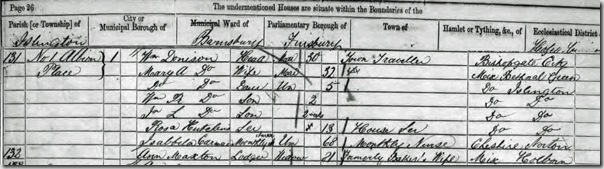 Page 26
The undermentioned Houses are situate within the Boundaries of the
Parish [or Township] of
City or Municipal Borough of
Municipal Ward of
Parliamentary Borough of
Town of
Hamlet or Tything, &c., of
Ecclesiastical District of
Islington Barnsbury Finsbury
131 No 1 Albion 1 Wm Denison Head Mar 30 Town Traveller Bishopgate City
Place Mary A Do Wife Mar 32 Midx Bethnal Green
Do Do Daur Un 5 Do Islington
Wm R Do Son 2 Do Do
L Do Son Do Do
Rosa Ser 13 House Ser Do Do
Isabella Monthly Nurse Un 68 Monthly Nurse Cheshire Norton
132 Ann Maxton Lodger Widow 21 Formerly Baker's Wife Midx Holborn